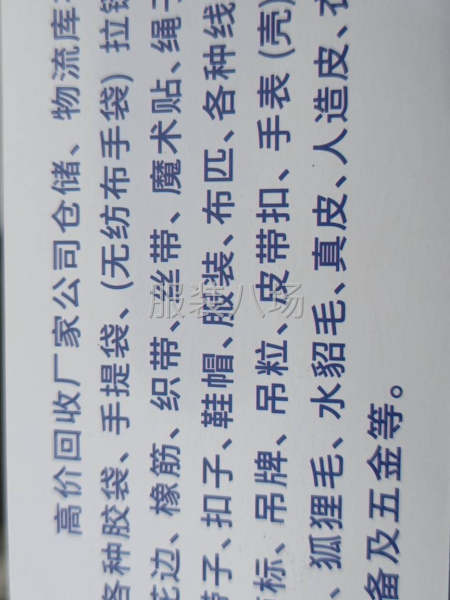 高价回收厂家公司仓储、物流库
各种胶袋、手提袋、(无纺布手袋) 拉链
花边、橡筋、织带、丝带、魔术贴、绳子
带子、扣子、鞋帽、服装、布匹、各种线
标、吊牌、吊粒、皮带扣、手表(壳)
、狐狸毛、水貂毛、真皮、人造皮、衣
备及五金等。
服装八场